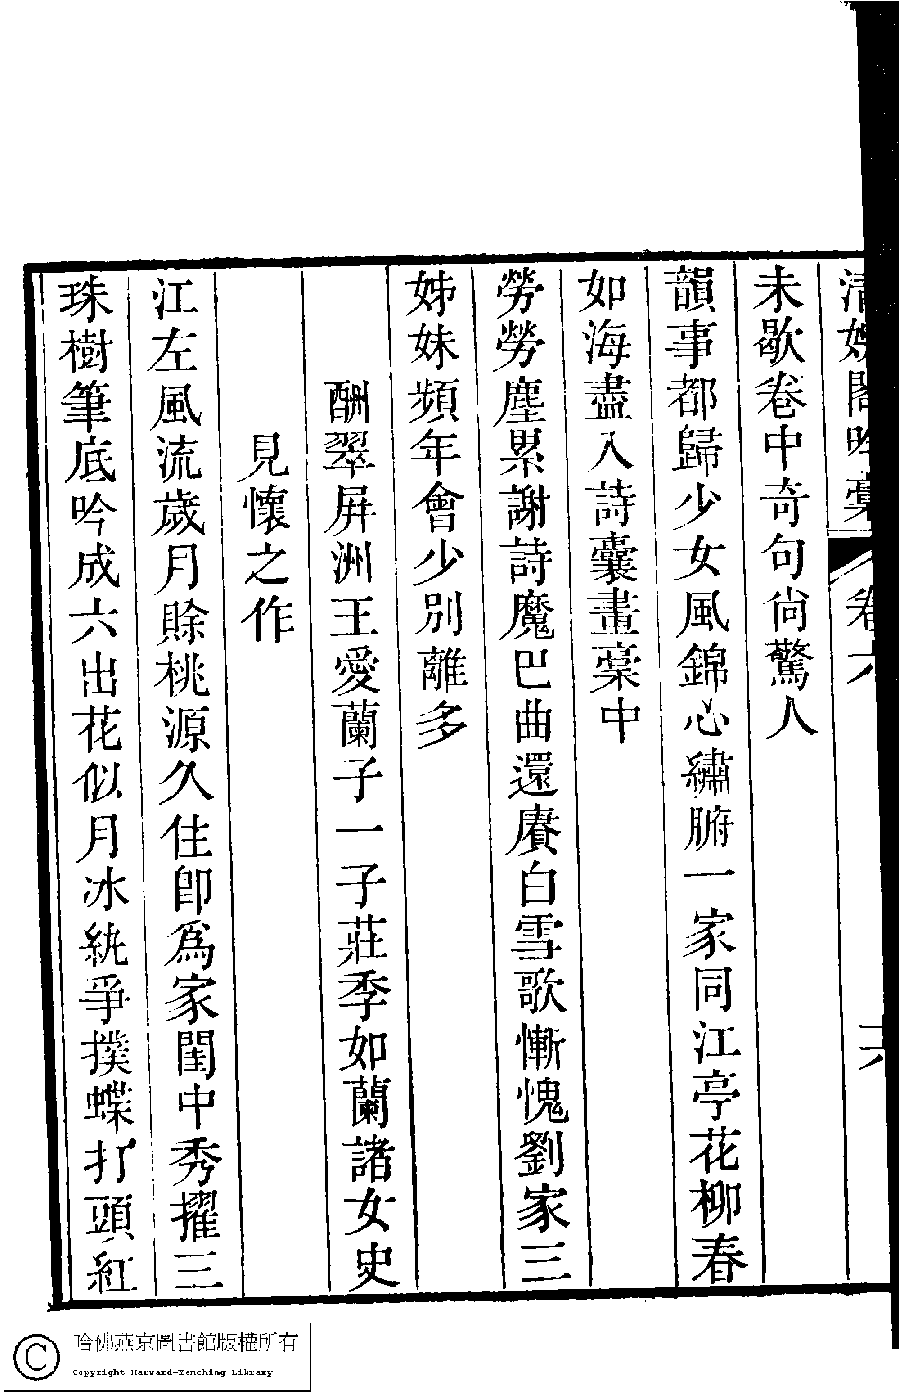 清娛閣吟藁 卷六 六
未歇卷中奇句尙驚人
韻事都歸少女風錦心繡腑一家同江亭花柳春
如海盡入詩囊畫稾中
勞勞塵累謝詩魔巴曲還賡白雪歌慚愧劉家三
姊妹頻年會少別離多
酬翠屛洲王愛蘭子一子莊季如蘭諸女史
見懷之作
江左風流歲月賒桃源久住卽爲家閨中秀擢三
珠樹筆底吟成六出花似月冰紈爭撲蝶打頭紅
哈佛燕京圖書館版權所有
Copyright Harvard-Yenching Library